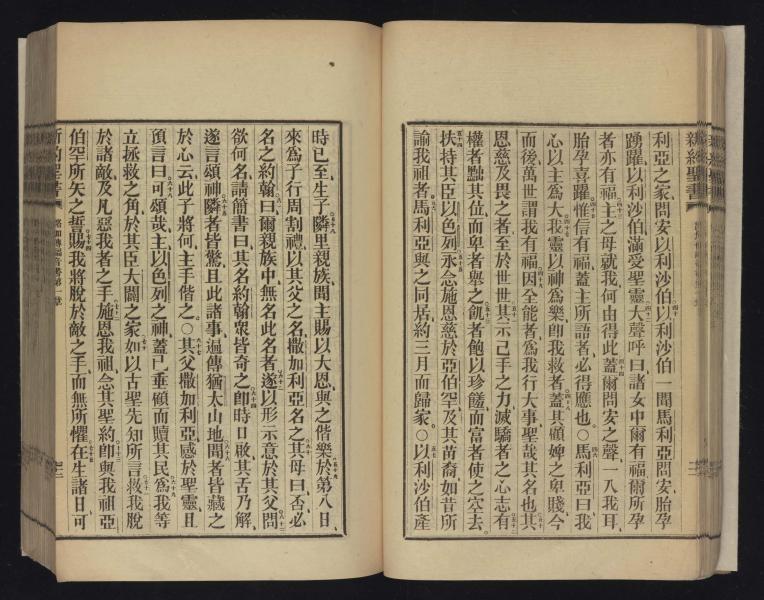 利亞之家問安以利沙伯以利沙伯一聞馬利亞問安胎孕
踴躍以利沙伯滿受聖靈大聲呼曰諸女中爾有福爾所孕
者亦有福主之母就我何由得此蓋爾問安之聲一入我耳
胎孕喜躍惟信有福蓋主所語者必得應也○馬利亞曰我
心以主爲大我靈以神爲樂卽我救者蓋其顧婢之卑賤今
而後萬世謂我有福因全能者爲我行大事聖哉其名也其
恩慈及畏之者至於世世其示己手之力滅驕者之心志有
權者黜其位而卑者舉之飢者飽以珍饈而富者使之空去
扶持其臣以色列永念施恩慈於亞伯罕及其苗裔如昔所
諭我祖者馬利亞與之同居約三月而歸家○以利沙伯產
時已至生子隣里親族聞主賜以大恩與之偕樂於第八日
來爲子行周割禮以其父之名撒加利亞名之其母曰否必
名之約翰曰爾親族中無名此名者遂以形示意於其父問
欲何名請簡書曰其名約翰衆皆奇之卽時日啟其舌乃解
遂言頌神隣者皆驚且此諸事遍傳猶太山地聞者皆藏之
於心云此子將何主手偕之○其父撒加利亞感於聖靈且
預言曰可頌哉主以色列之神蓋已垂顧而贖其民爲我等
立拯救之角於其臣大闢之家如以古聖先知所言救我脫
於諸敵及凡惡我者之手施恩我祖念其聖約卽與我祖亞
伯罕所矢之誓賜我將脫於敵之手而無所懼在生諸日可